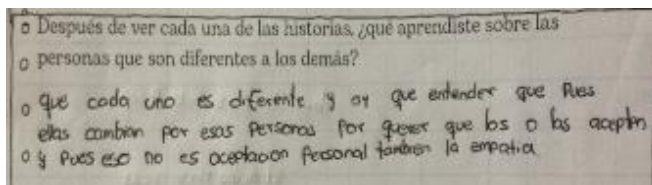 Después de ver cada una de las historias, ¿qué aprendiste sobre las
personas que son diferentes a los demás?
que cada uno es diferente y ay que entender que Pues
ellas cambian por esas Personas Por querer que los o las acepten
y Pues eso no es aceptacion Personal tambien la empatia